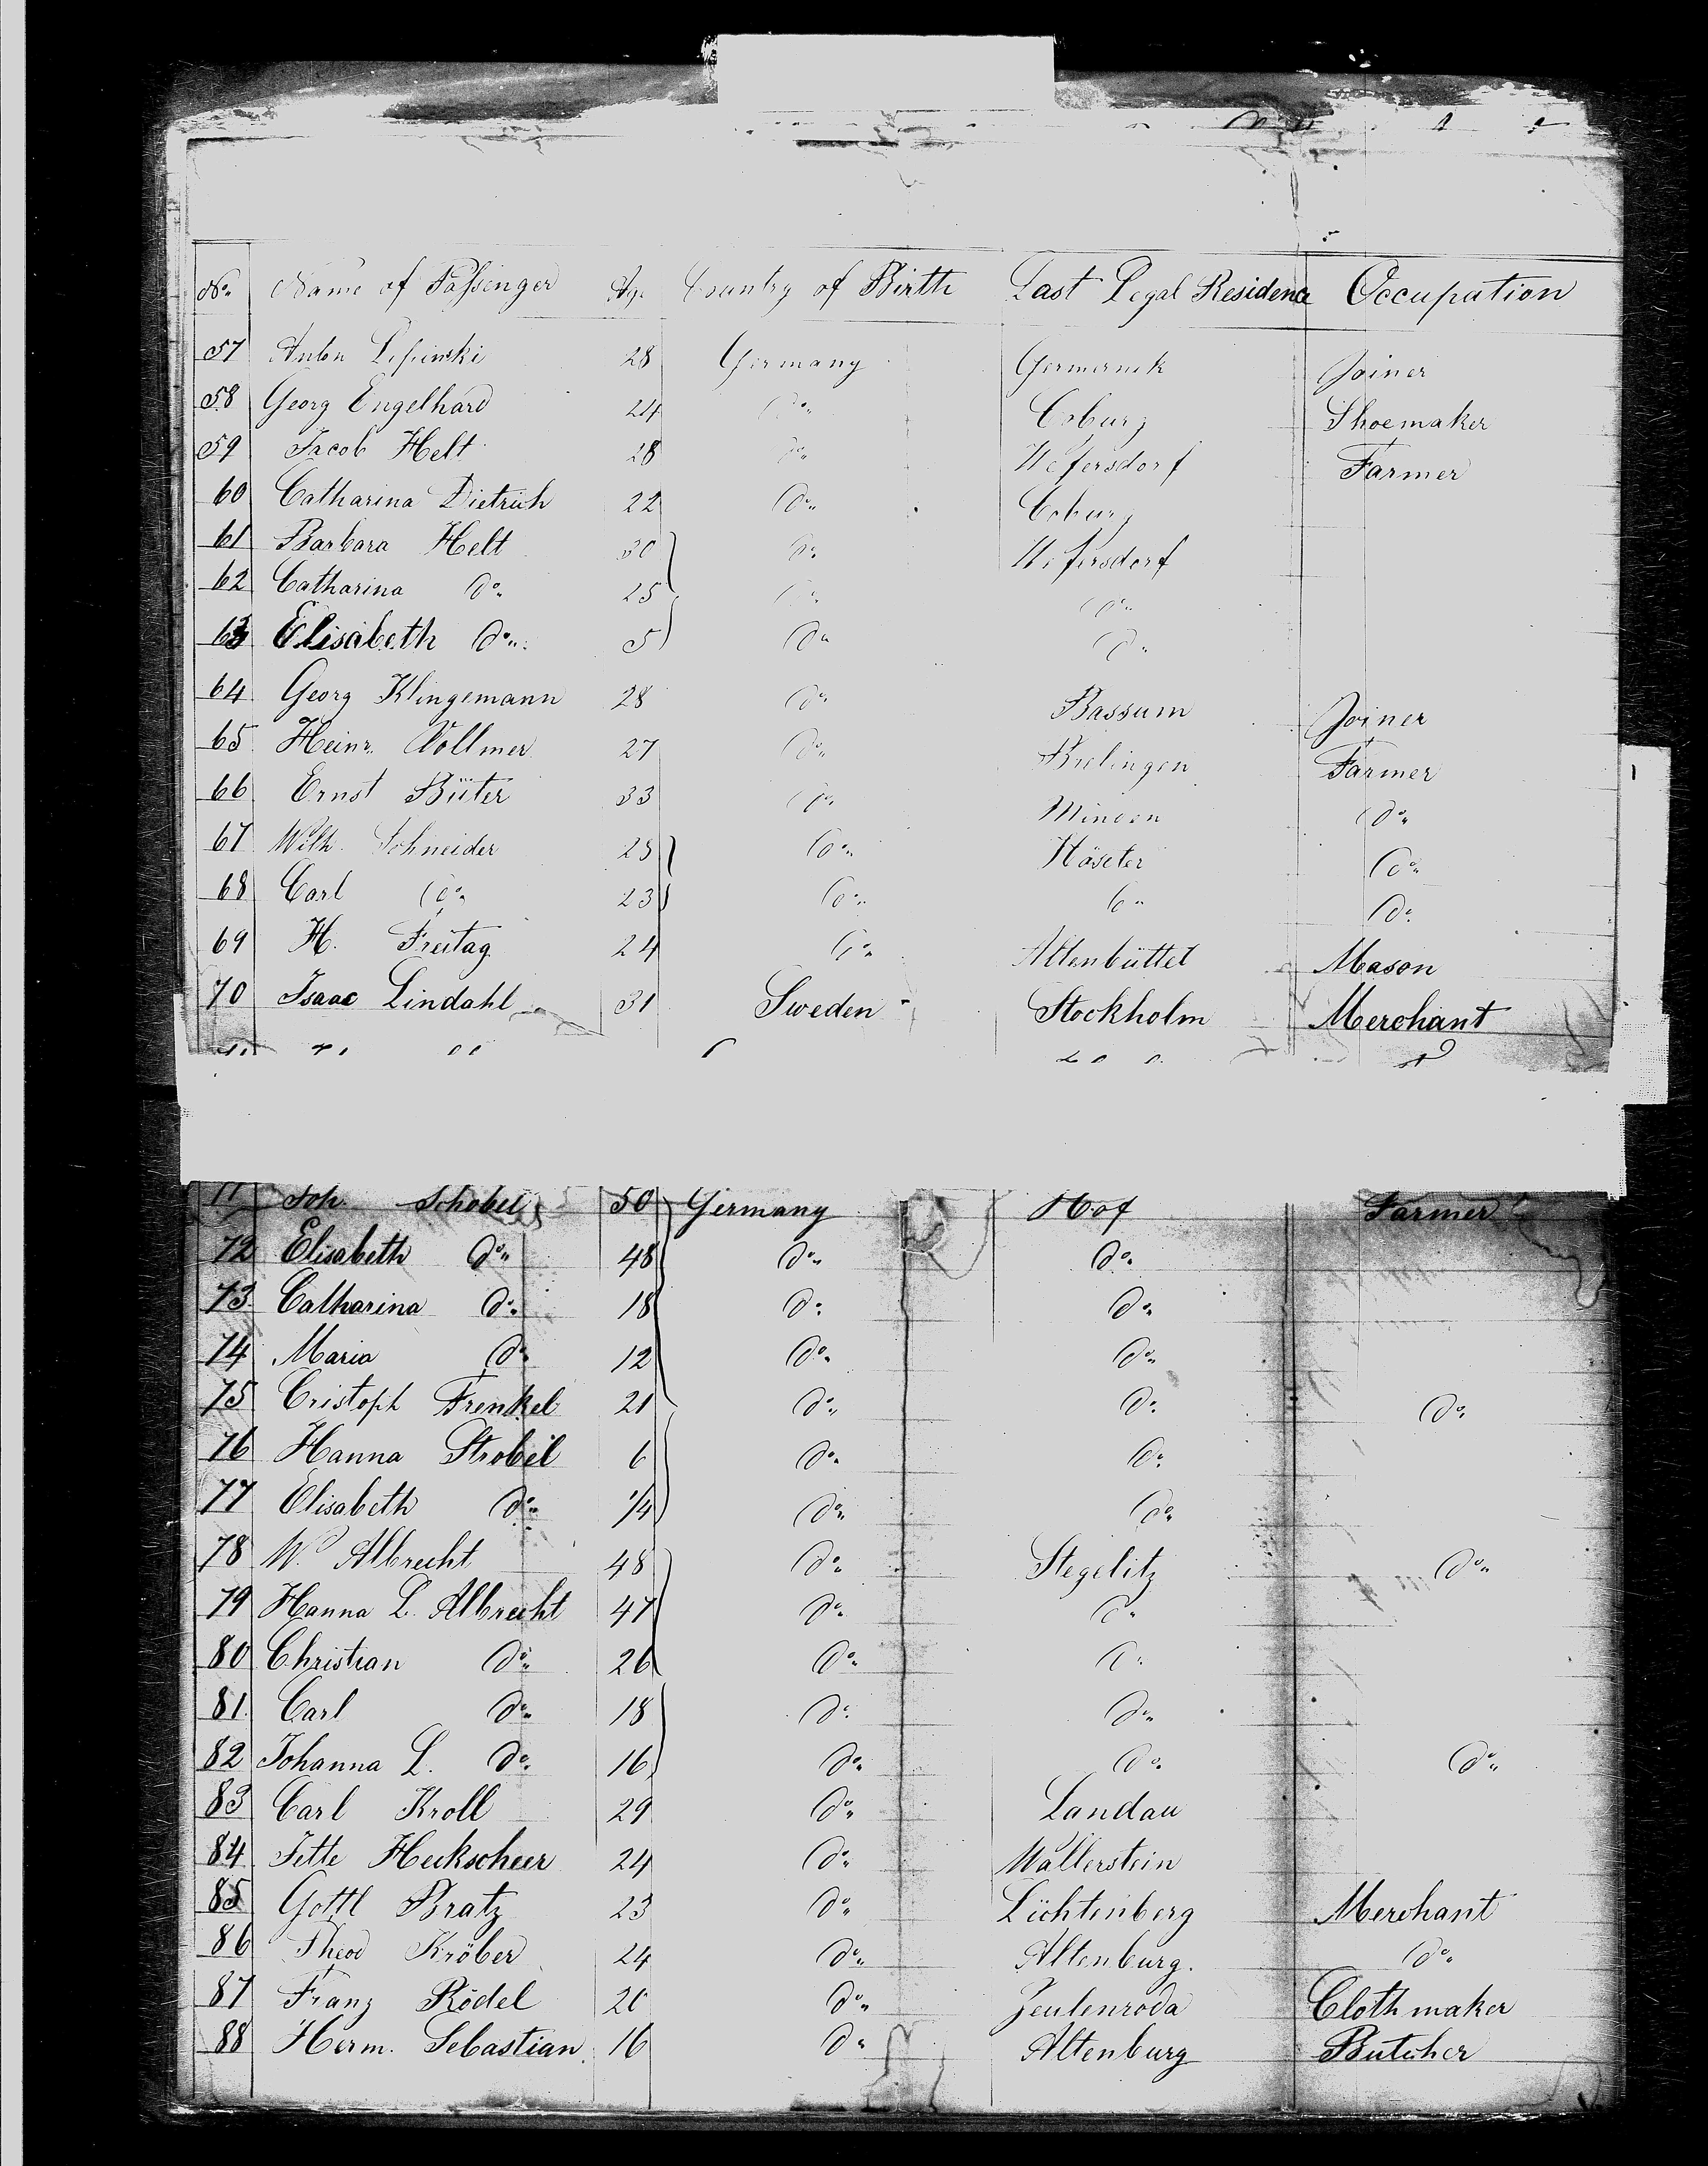 No. Name of Passenger Age Country of Birth Last Legal Residence Occupation
57 Anton Lipinski 28 Germany Joiner
58 Georg Engelhard 24 do. Coburg Shoemaker
59 Jacob Helt 28 do. Farmer
60 Catharina Dietrich 22 do. Coburg
61 Barbara Helt 30 do.
62 Catharina do. 25 do. do.
63 Elisabeth do. 5 do. do.
64 Georg Klingemann 28 do. Bassum Joiner
65 Heinr. Vollmer 27 do. Farmer
66 Ernst Büter 33 do. Minden do.
67 Wilh. Schneider 28 do. Höxter do.
68 Carl do. 23 do. do. do.
69 H. Freitag 24 do. Altenbüttel Mason
70 Isaac Lindahl 31 Sweden Stockholm Merchant
71 Joh. Schobel 50 Germany Hof Farmer
72 Elisabeth do. 48 do. do.
73 Catharina do. 18 do. do.
74 Maria do. 12 do. do.
75 Cristoph Frenkel 21 do. do. do.
76 Hanna Strobel 6 do. do.
77 Elisabeth do. 1/4 do. do.
78 W. Albrecht 48 do. Stegelitz do.
79 Hanna L. Albrecht 47 do. do.
80 Christian do. 26 do. do.
81 Carl do. 18 do. do.
82 Johanna L. do. 16 do. do. do.
83 Carl Kroll 29 do. Landau
84 Jette Heckscheer 24 do. Wallerstein
85 Gottl Bratz 23 do. Lichtenberg Merchant
86 Theod Kröber 24 do. Altenburg. do.
87 Franz Rödel 20 do. Zeulenroda Cloth maker
88 Herm. Sebastian 16 do. Altenburg Butcher